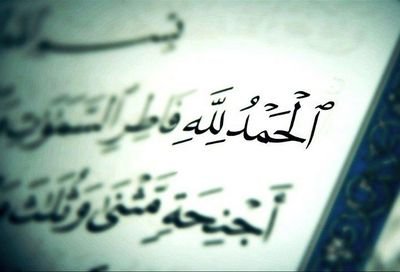 بِسْمِ ٱللَّهِ
ٱلْحَمْدُ لِلَّهِ فَاطِرِ ٱلسَّمَٰوَٰتِ
أَجْنِحَةٍ مَّثْنَىٰ وَثُلَٰثَ